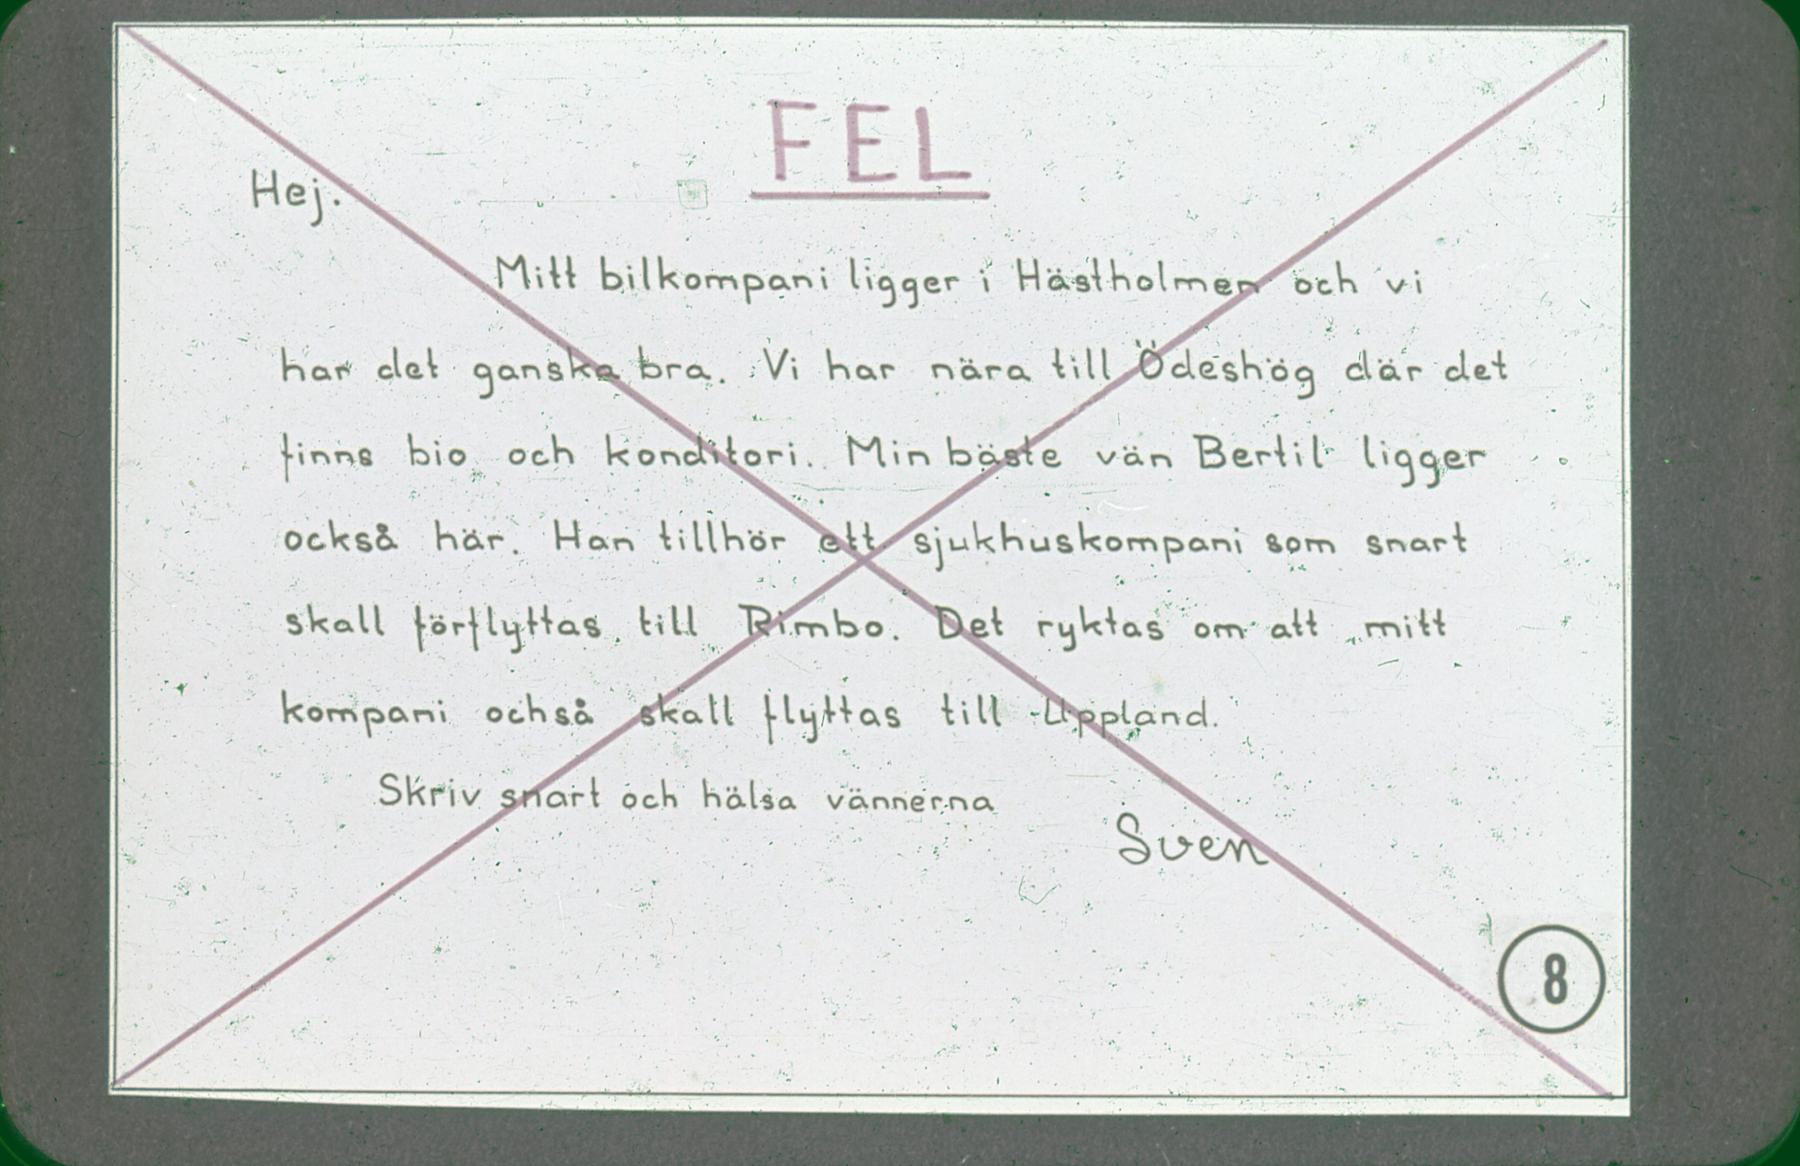 FEL
Hej.
Mitt bilkompani ligger i Hästholmen och vi
har det ganska bra. Vi har nära till Ödeshög där det
finns bio och konditori. Min bäste vän Bertil ligger
också här. Han tillhör ett sjukhuskompani som snart
skall förflyttas till Rimbo. Det ryktas om att mitt
kompani ochså skall flyttas till Uppland.
Skriv snart och hälsa vännerna
Sven
8